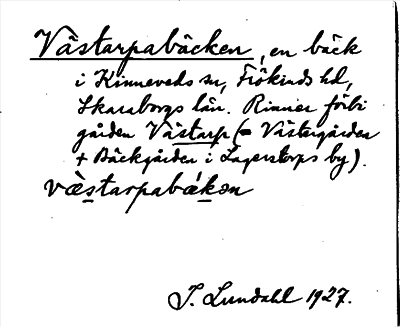 Västarpabäcken, en bäck
i Kinneveds sn, Frökinds hd,
Skaraborgs län. Rinner förbi
gården Västarp (= Västergården
+ Bäckgården i Lagerstorps by).
væ̀starpabǽkən
J. Lundahl 1927.